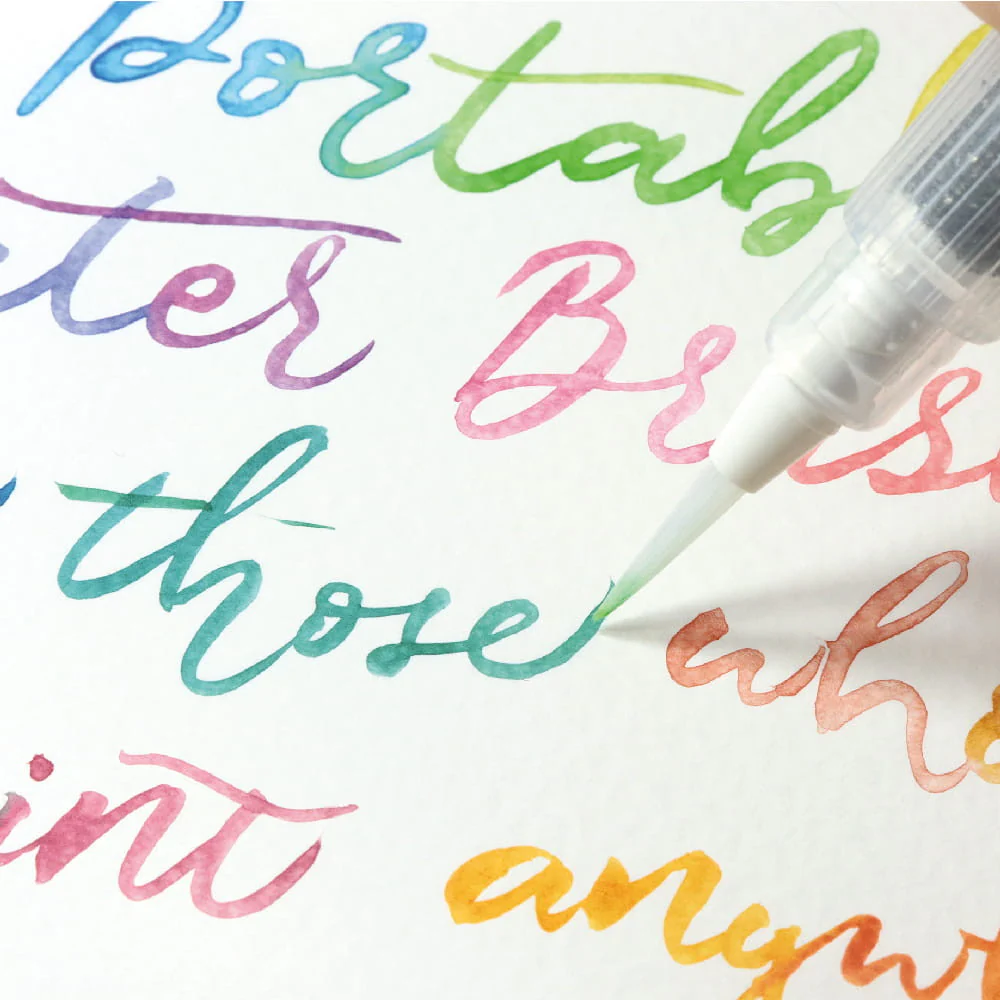 Portabl
ter Brus
those who
int anyw